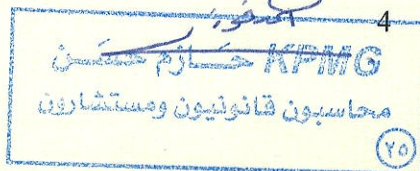 4
KPMG حازم حسن
محاسبون قانونيون ومستشارون
٢٥